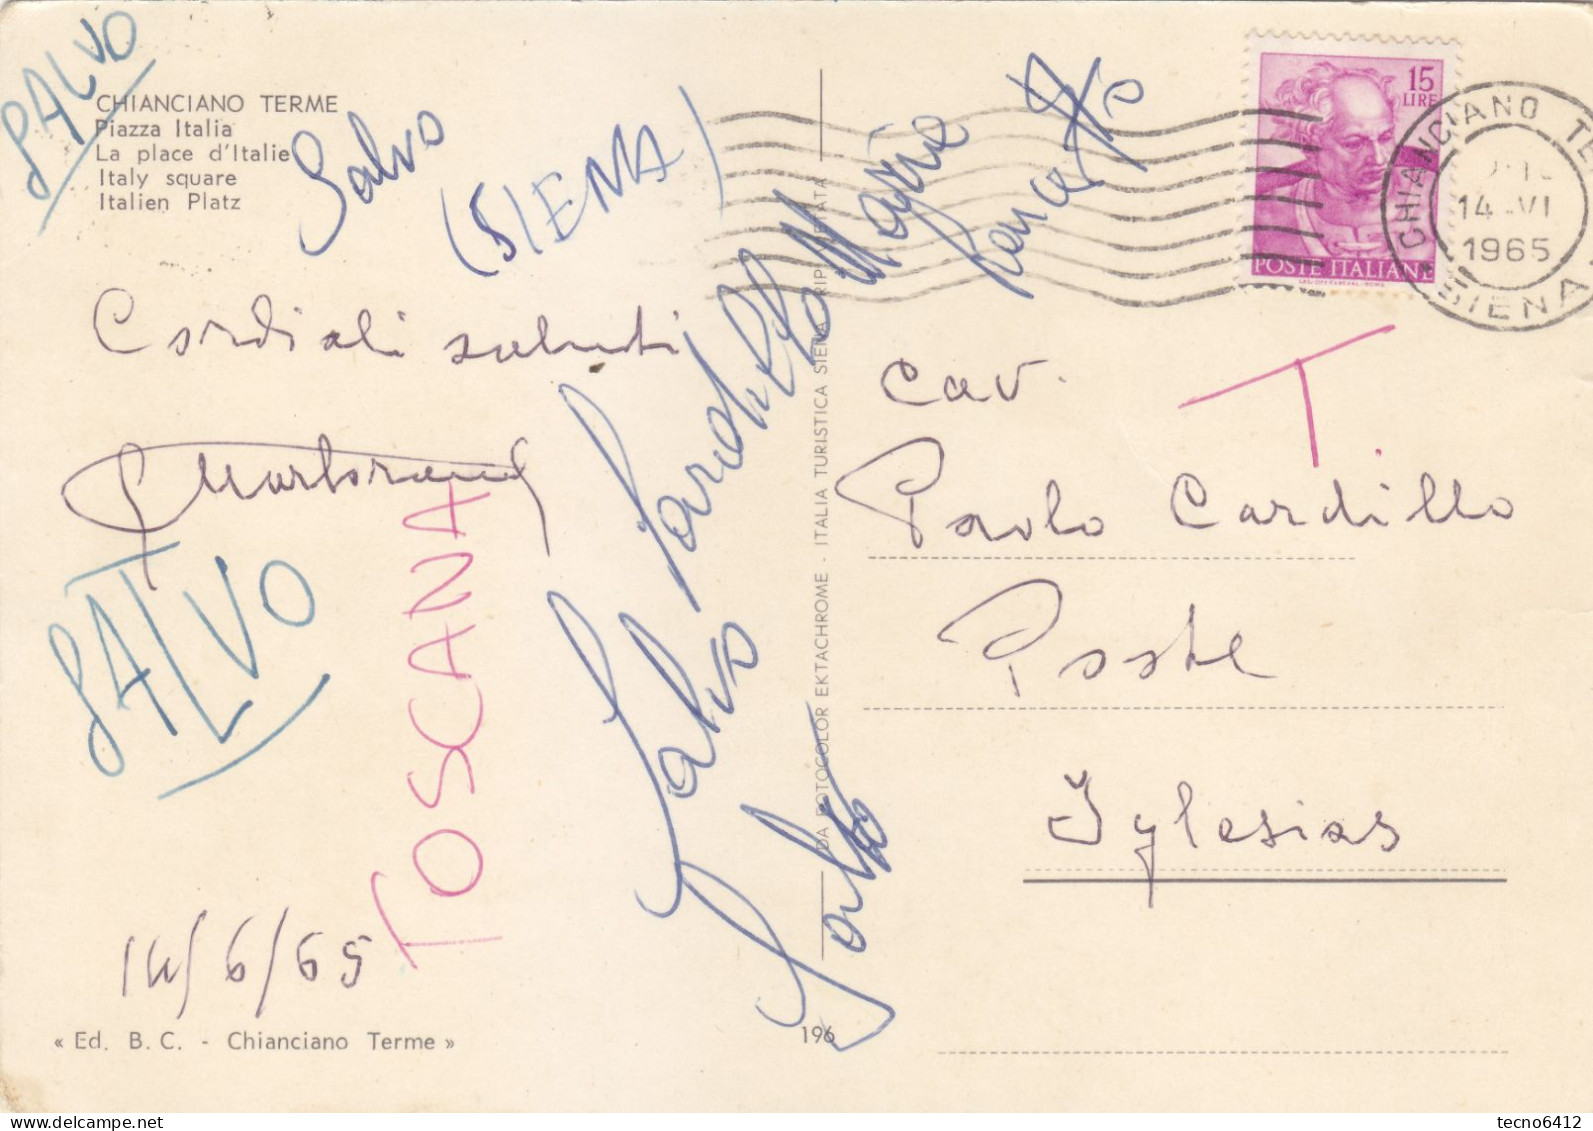 SALVO
CHIANCIANO TERME
Piazza Italia
La place d'Italie
Italy square
Italien Platz
Salvo
(SIENA)
Cordiali saluti
SALVO
TOSCANA
14/6/65
« Ed. B. C. - Chianciano Terme »
Salvo
196
DA FOTOCOLOR EKTACHROME - ITALIA TURISTICA SIENA RIP. VIETATA
15
LIRE
POSTE ITALIANE
CHIANCIANO TE
14 -VI
1965
SIENA
T
Cav.
Paolo Cardillo
Poste
Iglesias
tecno6412